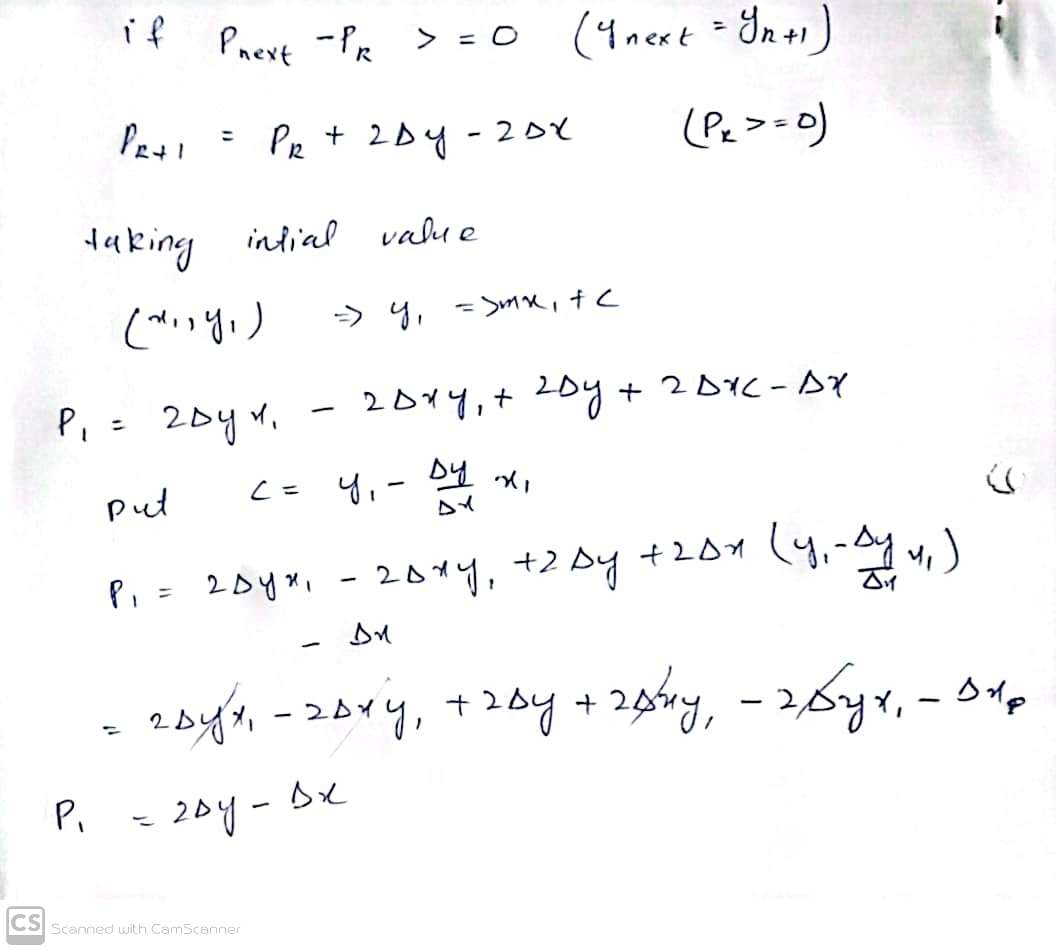 if Pnext - Pk >= 0 (Ynext = Yk+1)
Pk+1 = Pk + 2Δy - 2Δx (Pk >= 0)
taking intial value
(x₁, y₁) ⇒ y₁ = mx₁ + c
P₁ = 2Δy x₁ - 2Δx y₁ + 2Δy + 2Δxc - Δx
put c = y₁ - Δy/Δx x₁
P₁ = 2Δy x₁ - 2Δx y₁ + 2Δy + 2Δx (y₁ - Δy/Δx x₁)
- Δx
= 2Δy x₁ - 2Δx y₁ + 2Δy + 2Δx y₁ - 2Δy x₁ - Δx
P₁ = 2Δy - Δx
CS Scanned with CamScanner